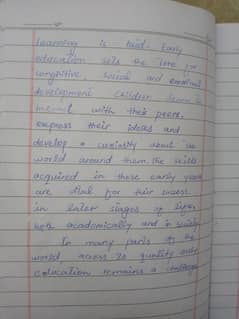 Learning is laid. Early
education sets the tone for
congnitive, social and emotional
development children learn to
interact with their peers,
express their ideas and
develop a curiosity about the
world around them the skills
acquired in these early years
are vital for their success
in later stages of life,
both academically and in society
In many parts of the
world, access to quality early
education remains a challenge